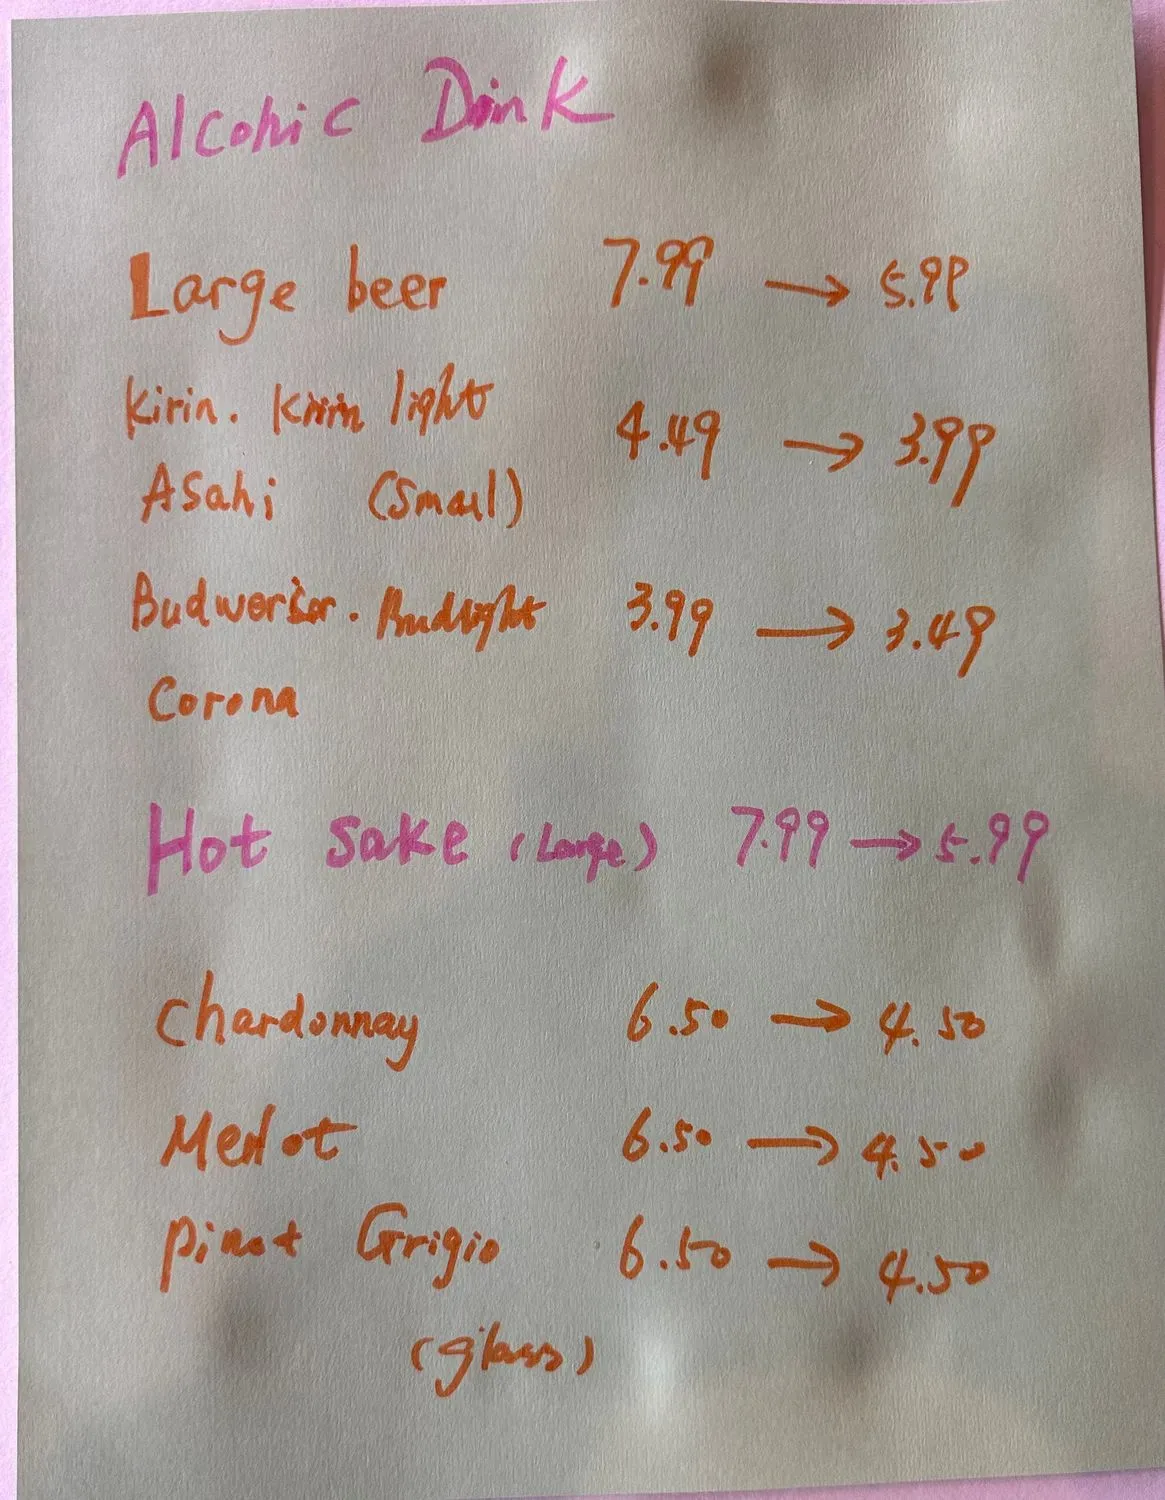 Alcohic Drink
Large beer 7.99 → 5.99
Kirin. Kirin light 4.49 → 3.99
Asahi (Small)
Budwerser. Budlight 3.99 → 3.49
Corona
Hot Sake (Large) 7.99 → 5.99
Chardonnay 6.50 → 4.50
Merlot 6.50 → 4.50
Pinot Grigio 6.50 → 4.50
(glass)